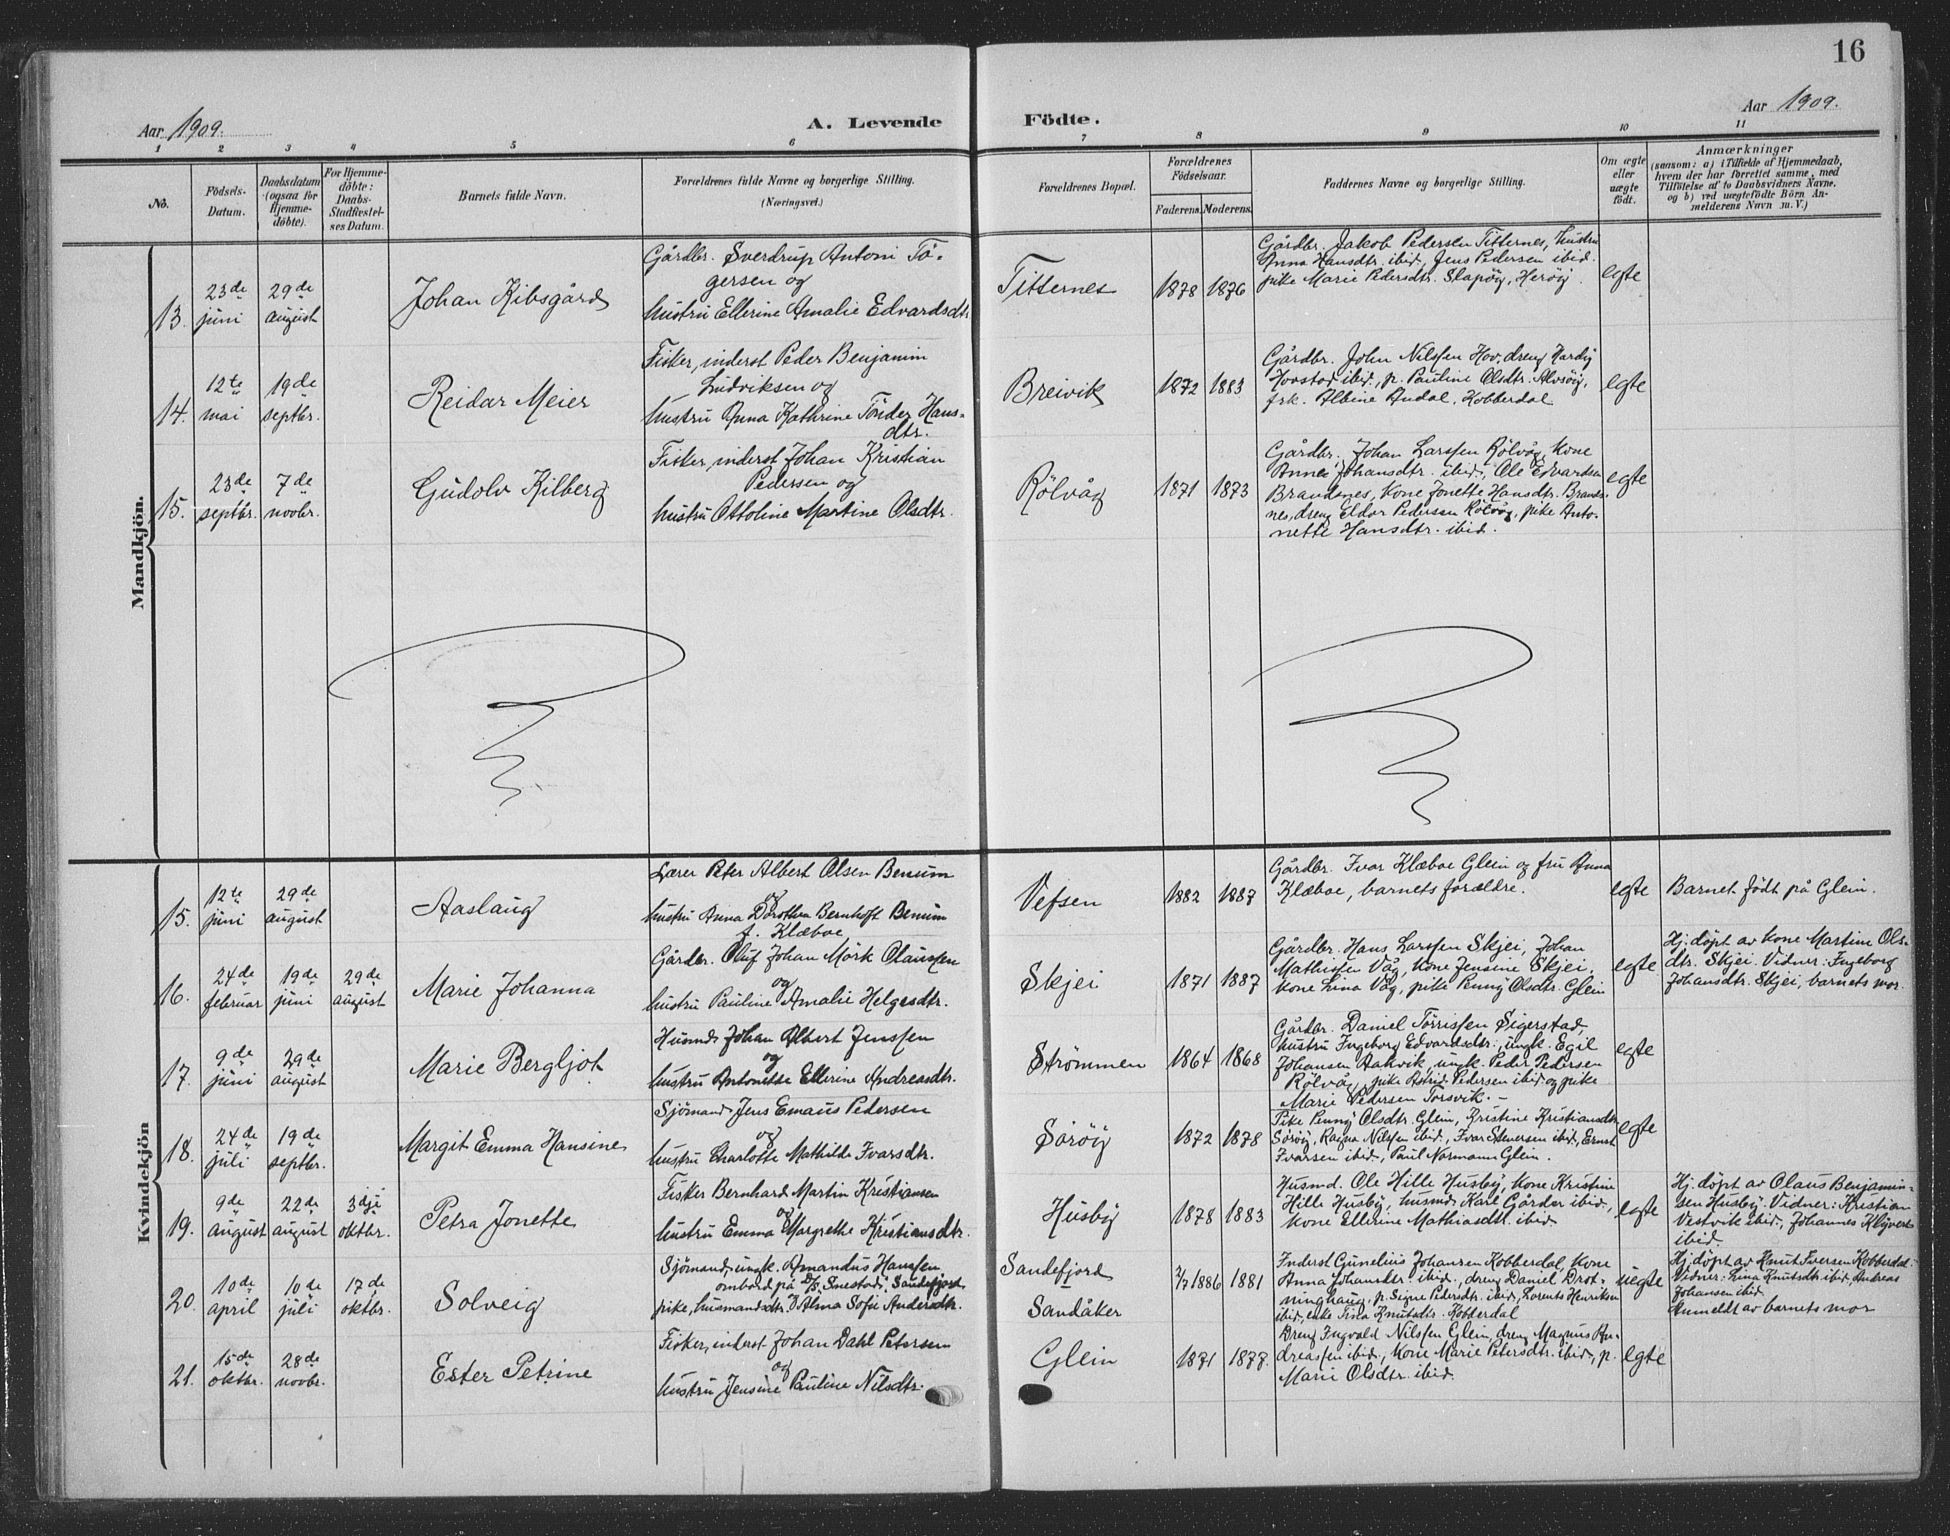 16
Aar 1909.
A. Levende Födte.
Aar 1909.
1 2 3 4 5 6 7 8 9 10 11
No.
Födsels-
Datum.
Daabsdatum
(ogsaa for
Hjemme-
döbte).
For Hjemme-
döbte:
Daabs-
Stadfæstel-
ses Datum.
Barnets fulde Navn.
Forældrenes fulde Navne og borgerlige Stilling.
(Næringsvei.)
Forældrenes Bopæl.
Forældrenes
Födselsaar.
Faderens. Moderens.
Faddernes Navne og borgerlige Stilling.
Om ægte
eller
uægte
födt.
Anmærkninger
(saasom: a) i Tilfælde af Hjemmedaab,
hvem der har forrettet samme, med
Tilföielse af to Daabsvidners Navne,
og b) ved uægtefödte Börn An-
melderens Navn m. V.)
Mandkjön.
13.
23de
juni
29de
august
Johan Kibsgård
Gårdbr. Sverdrup Antoni Tö-
gersen og
hustru Ellerine Amalie Edvardsdtr.
Titternes
1878 1876
Gårdbr. Jakob Pedersen Titternes, hustru
Anna Hansdtr. ibid, Jens Pedersen ibid.
pike Marie Pedersdtr. Slapöy, Heröy.
egte
14.
12te
mai
19de
septbr.
Reidar Meier
Fisker, inderst Peder Benjamin
Ludviksen og
hustru Anna Kathrine Tönder Hans-
dtr.
Breivik
1872 1883
Gårdbr. John Nilssen Hov, dreng Hardy
Hovstad ibid., p. Pauline Olsdtr. Alvsöy,
frk. Albine Andal, Kobberdal.
egte
15.
23de
septbr.
7de
novbr.
Gudolv Kilberg
Fisker, inderst Johan Kristian
Pedersen og
hustru Ottoline Martine Olsdtr.
Rölvåg
1871 1873
Gårdbr. Johan Larssen Rölvåg, kone
Anne Johansdtr. ibid, Ole Edvardsen
Brandsnes, kone Jonette Hansdtr. Brands-
nes, dreng Eldor Pedersen Rölvåg, pike Anto-
nette Hansdtr. ibid.
egte
Kvindekjön
15.
12te
juni
29de
august
Aaslaug
Lærer Peter Albert Olsen Benum
og
hustru Anna Dorothea Bernhoft Benum
f. Klæboe
Vefsen
1882 1887
Gårdbr. Ivar Klæboe Glein og fru Anna
Klæboe, barnets forældre.
egte
Barnet födt på Glein.
16.
24de
februar
19de
juni
29de
august
Marie Johanna
Gårdbr. Oluf Johan Mörk Olaussen
og
hustru Pauline Amalie Helgesdtr.
Skjei
1871 1887
Gårdbr. Hans Larssen Skjei, Johan
Mathissen Våg, kone Jensine Skjei,
kone Lina Våg, pike Penny Olsdtr. Glein
egte
Hj. döpt av kone Martine Ols-
dtr. Skjei. Vidner: Ingeborg
Johansdtr. Skjei, barnets mor.
17.
9de
juni
29de
august
Marie Bergljot
Husmd. Johan Albert Jenssen
og
hustru Antonette Ellerine Andreasdtr.
Strömmen
1864 1868
Gårdbr. Daniel Törrissen Sigerstad,
hustru Ingeborg Edvardsdtr., ungk. Egil
Johansen Aakvik, ungk. Peder Pedersen
Rölvåg, pike Astrid Pedersen ibid og pike
Marie Pedersen Torsvik. –
egte
18.
24de
juli
19de
septbr.
Margit Emma Hansine
Sjömand Jens Emaus Pedersen
og
hustru Charlotte Mathilde Ivarsdtr.
Söröy
1872 1878
Pike Penny Olsdtr. Glein, Kristine Kristiansdtr.
Söröy, Ragna Nilssen ibid., Ivar Iversen ibid, Ernst
Ivarsen ibid, Paul Normann Glein.
egte
19.
9de
august
22de
august
3dje
oktbr.
Petra Jonette
Fisker Bernhard Martin Kristiansen
og
hustru Emma Margrethe Kristiansdtr.
Husby
1878 1883
Husmd. Ole Hille Husby, kone Kristine
Hille Husby, husmd. Karl Gårder ibid,
kone Ellerine Mathiasdtr. ibid
egte
Hj. döpt av Olaus Benjamin-
sen Husby. Vidner: Kristian
Vestvik ibid, Johannes
ibid.
20.
10de
april
10de
juli
17de
oktbr.
Solveig
Sjömand, ungk. Amandus Hanssen
ombord på D/S "Snestad", Sandefjord
pike, husmandsdtr. Alma Sofie Andersdtr.
Sandefjord
Sandåker
2/7 1886 1881
Inderst Gunelius Johansen Kobberdal, kone
Anna Johansdtr. ibid., dreng Daniel Drot-
ninghaug, p. Signe Pedersdtr. ibid, Lorents Henriksen
ibid, enke Tina Knutsdtr. Kobberdal
uegte
Hj. döpt av Knut Iversen Kobberdal.
Vidner: Lina Knutsdtr. ibid, Andreas
Johansen ibid.
Anmeldt av barnets mor
21.
15de
oktbr.
28de
novbr.
Ester Petrine
Fisker, inderst Johan Dahl Petersen
og
hustru Jensine Pauline Nilsdtr.
Glein
1871 1877.
Dreng Ingvald Nilssen Glein, dreng Magnus An-
dreassen ibid., kone Marie Petersdtr. ibid, p.
Marie Olsdtr. ibid.
egte